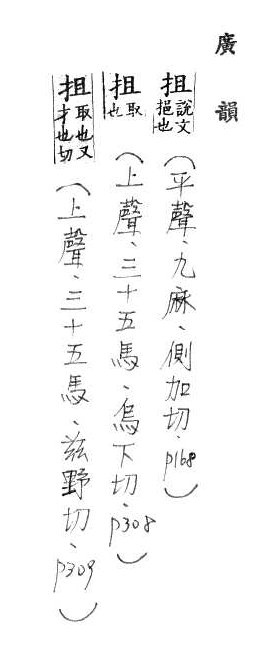 廣韻
抯 說文挹也 （平聲、九麻、側加切、p168）
抯 取也 （上聲、三十五馬、烏下切、p308）
抯 取也又才也切 （上聲、三十五馬、茲野切、p309）